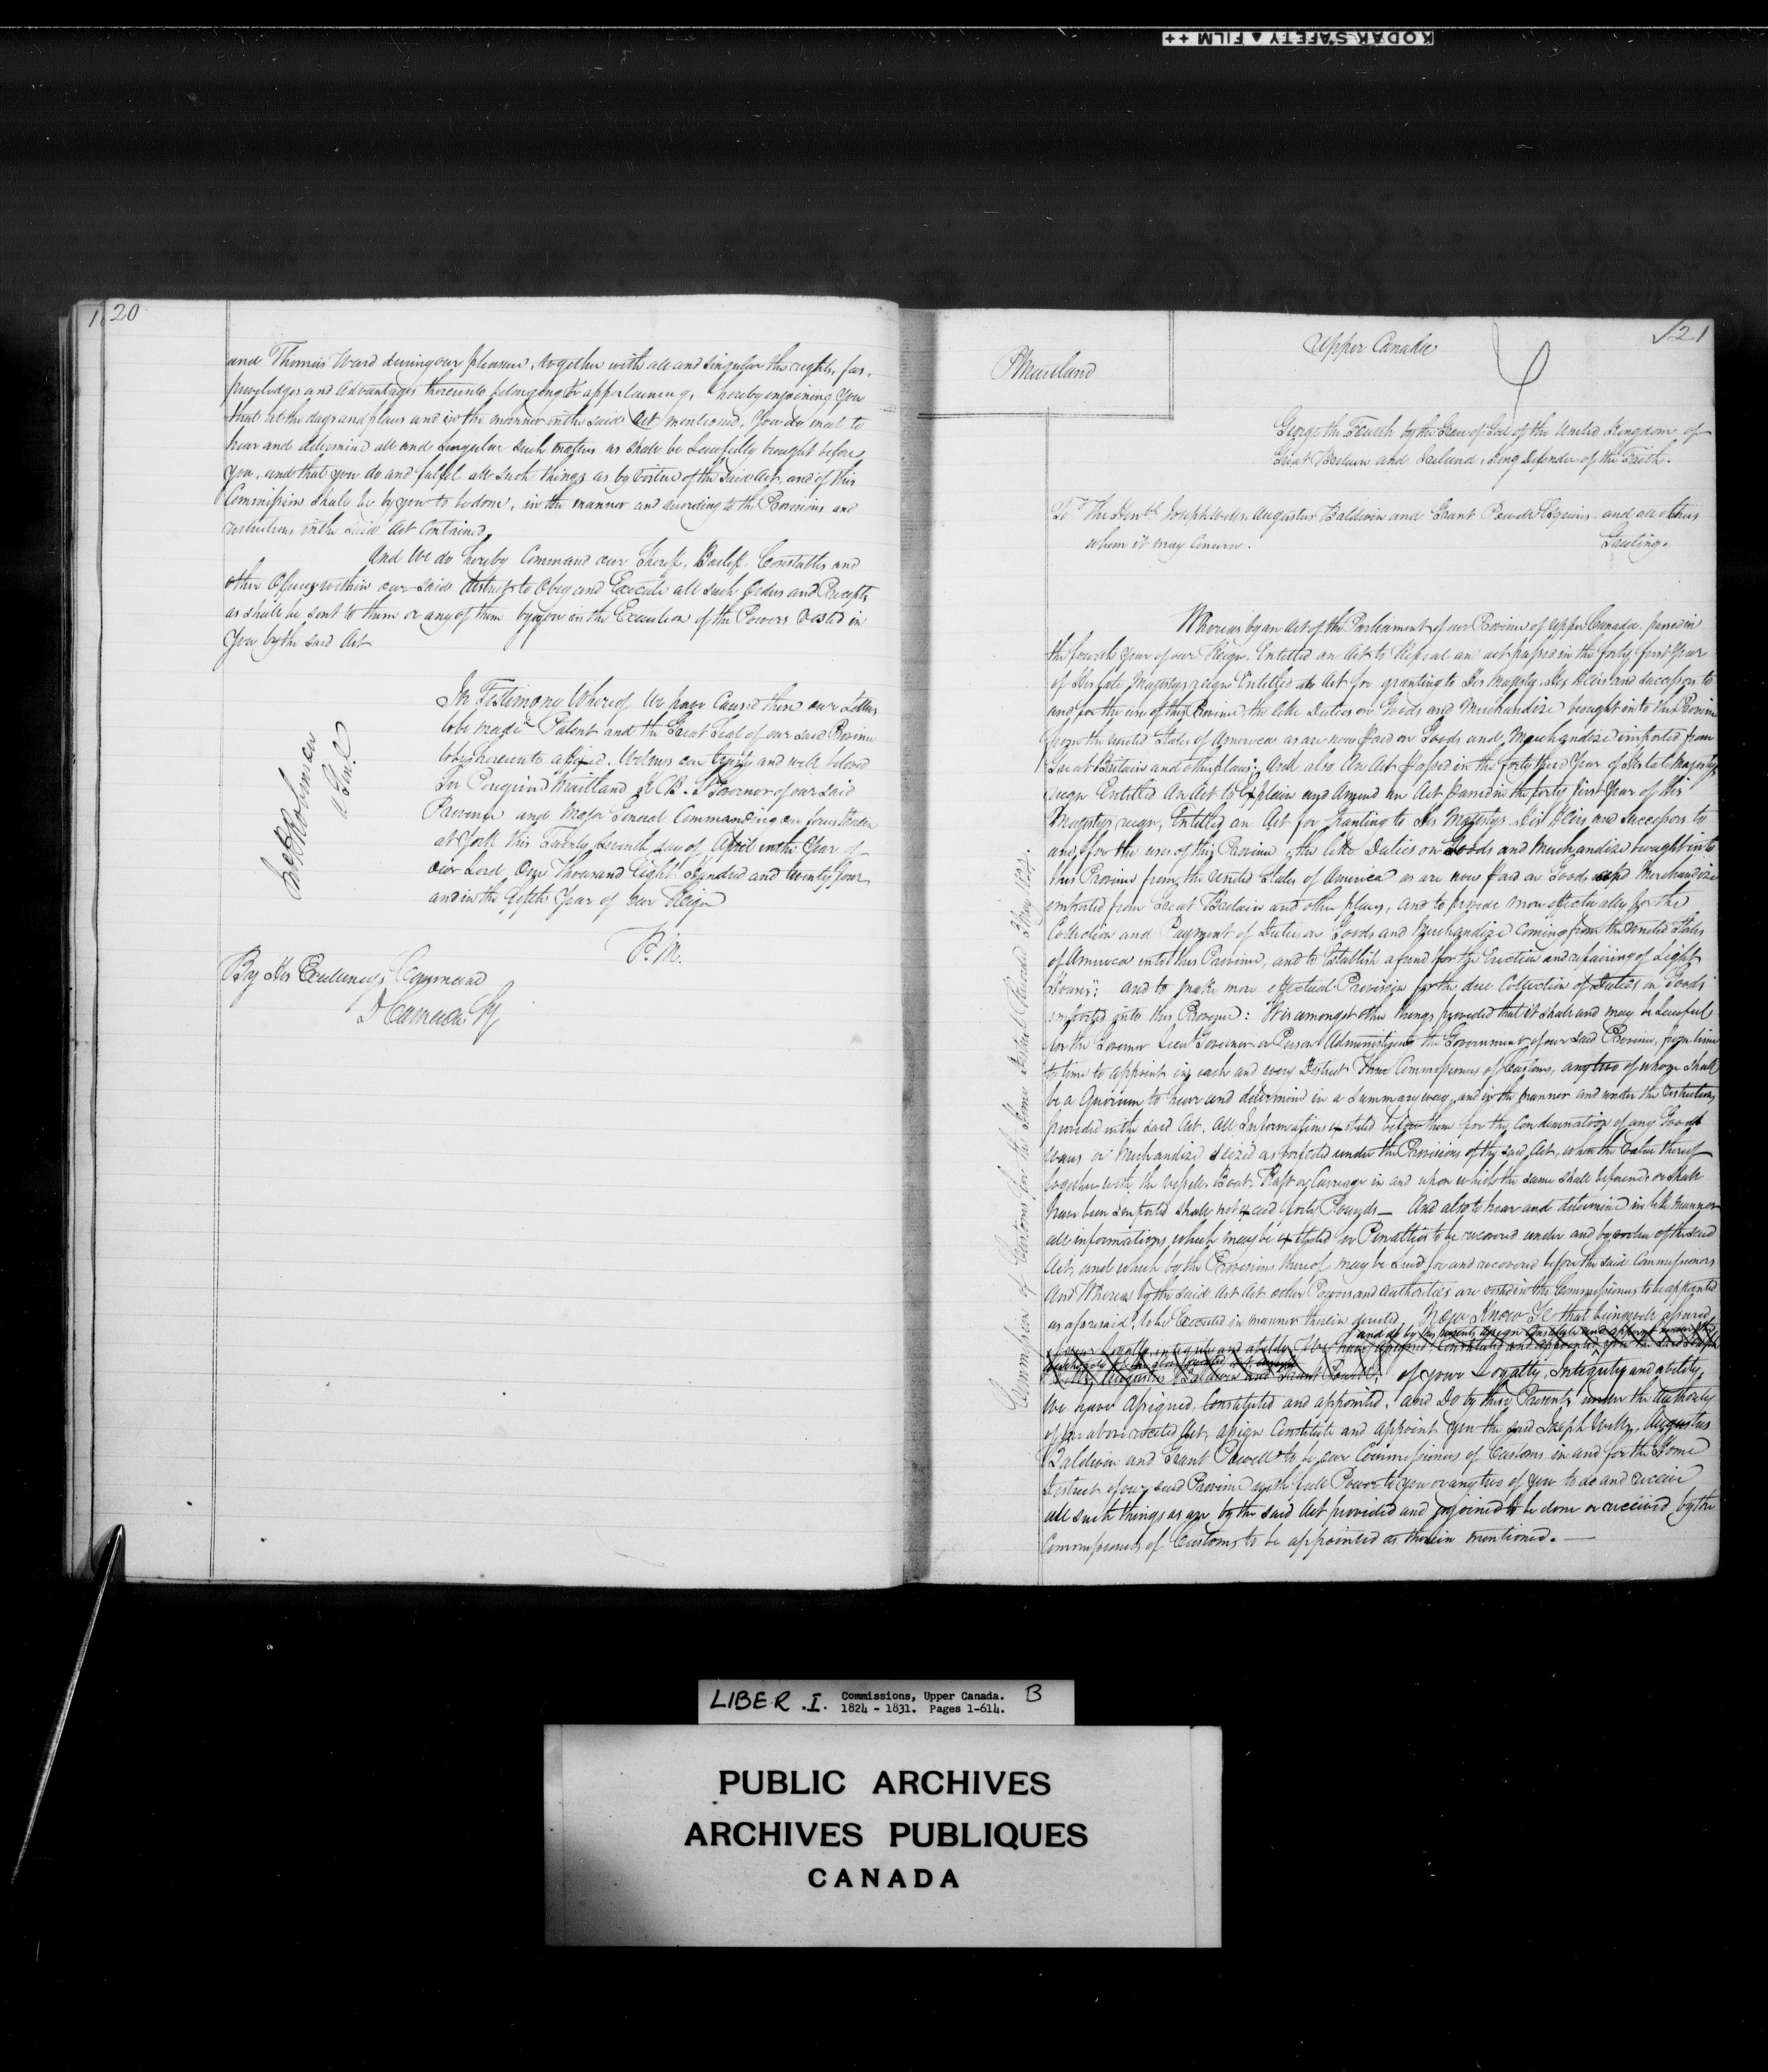 KODAK SAFETY ▲ FILM ++
20
and Thomas Ward during our pleasure, together with all and singular the rights, fees,
priveledges and Advantages thereunto belonging or appertaining, hereby enjoining You
that at the days and places and in the manner in the said Act mentioned, You do meet to
hear and determine all and Singular such matters as shall be Lawfully brought before
You, and that you do and fulfil all such things as by virtue of the said Act, and of this
Commission shall be by you to be done, in the manner and according to the Provisions and
in the said Act Contained,
And We do hereby Command our Sheriff, Bailiff, Constables and
other Officers within our said District to Obey and Execute all such Orders and Precepts
as shall be sent to them or any of them by you in the Execution of the Powers vested in
You by the said Act
In Testimony Whereof We have Caused these our Letters
to be made Patent and the Great Seal of our said Province
to be hereunto affixed. Witness our trusty and well beloved
Sir Peregrine Maitland K.C.B. Lt Governor of our said
Province and Major General Commanding our forces therein
at York this Twenty Seventh day of April in the Year of
Our Lord, One Thousand Eight Hundred and twenty four,
and in the fifth Year of Our Reign
P. M.
By His Excellency's Command
D Cameron Sy
121
Upper Canada
P Maitland
George the Fourth by the Grace of God of the United Kingdom of
Great Britain and Ireland, King Defender of the Faith.
To The Honble Joseph Wells, Augustus Baldwin and Grant Powell Esquires, and all others
whom it may Concern. Greeting.
Whereas by an Act of the Parliament of our Province of Upper Canada, passed in
the fourth Year of our Reign, Entitled an Act to Repeal an act passed in the forty first Year
of His late Majestys reign Entitled an Act for granting to His Majesty, His Heirs and Successors to
and for the use of this Province, the like Duties on Goods and Merchandize brought in to this Province
from the United States of America as are now paid on Goods and Merchandize imported from
Great Britain and other places; And also An Act Passed in the forty third Year of His late Majestys
reign Entitled An Act to Explain and Amend an Act passed in the forty first Year of His
Majestys reign, Entitled an Act for Granting to His Majestys His Heirs and Successors to
and for the uses of this Province, the like Duties on Goods and Merchandize brought into
this Province from the United States of America as are now paid on Goods and Merchandize
imported from Great Britain and other places, and to provide more effectually for the
Collection and Payment of Duties on Goods and Merchandize Coming from the United States
of America into this Province, and to Establish a fund for the Erection and repairing of Light
Houses; and to make more effectual Provision for the due Collection of Duties on Goods
imported into this Province: It is amongst other things provided that it shall and may be Lawful
for the Governor Lieut Governor or Person Administering the Government of our said Province, from time
to time to appoint in each and every District Three Commissioners of Customs, any two of whom shall
be a Quorum to hear and determine in a Summary way, and in the manner and under the restrictions
provided in the said Act, All Informations exhibited before them for the Condemnation of any Goods
wares or Merchandize seized as forfeited under the Provisions of the said Act, when the Value thereof
together with the vessel, Boat, Raft or Carriage in and upon which the same shall be found or shall
have been imported shall not exceed forty Pounds — And also to hear and determine in like manner
all informations which may be exhibited for Penalties to be recovered under and by virtue of the said
Act, and which by the Provisions thereof may be Sued for and recovered before the said Commissioners
And Whereas by the said Act Act other Powers and Authorities are vested in the Commissioners to be appointed
as aforesaid, to be Executed in manner therein directed Now Know Ye that being well assured
and do by these presents assign Constitute and appoint
of your Loyalty integrity and ability We have assigned, Constituted and appointed, you the said Joseph
Augustus Baldwin and Grant Powell; of your Loyalty, Integrity and ability,
We have Assigned, Constituted and appointed, and Do by these Presents under the Authority
of the above recited Act, assign Constitute and Appoint You the said Joseph Wells, Augustus
Baldwin and Grant Powell to be our Commissioners of Customs in and for the Home
District of our said Province with full Power to you or any two of you to do and receive
all such things as are by the said Act provided and enjoined to be done or received by the
Commissioners of Customs to be appointed as therein mentioned. —
Commission of Customs for the Home District Recorded 3 May 1824.
LIBER .I. Commissions, Upper Canada. B
1824 - 1831. Pages 1-614.
PUBLIC ARCHIVES
ARCHIVES PUBLIQUES
CANADA